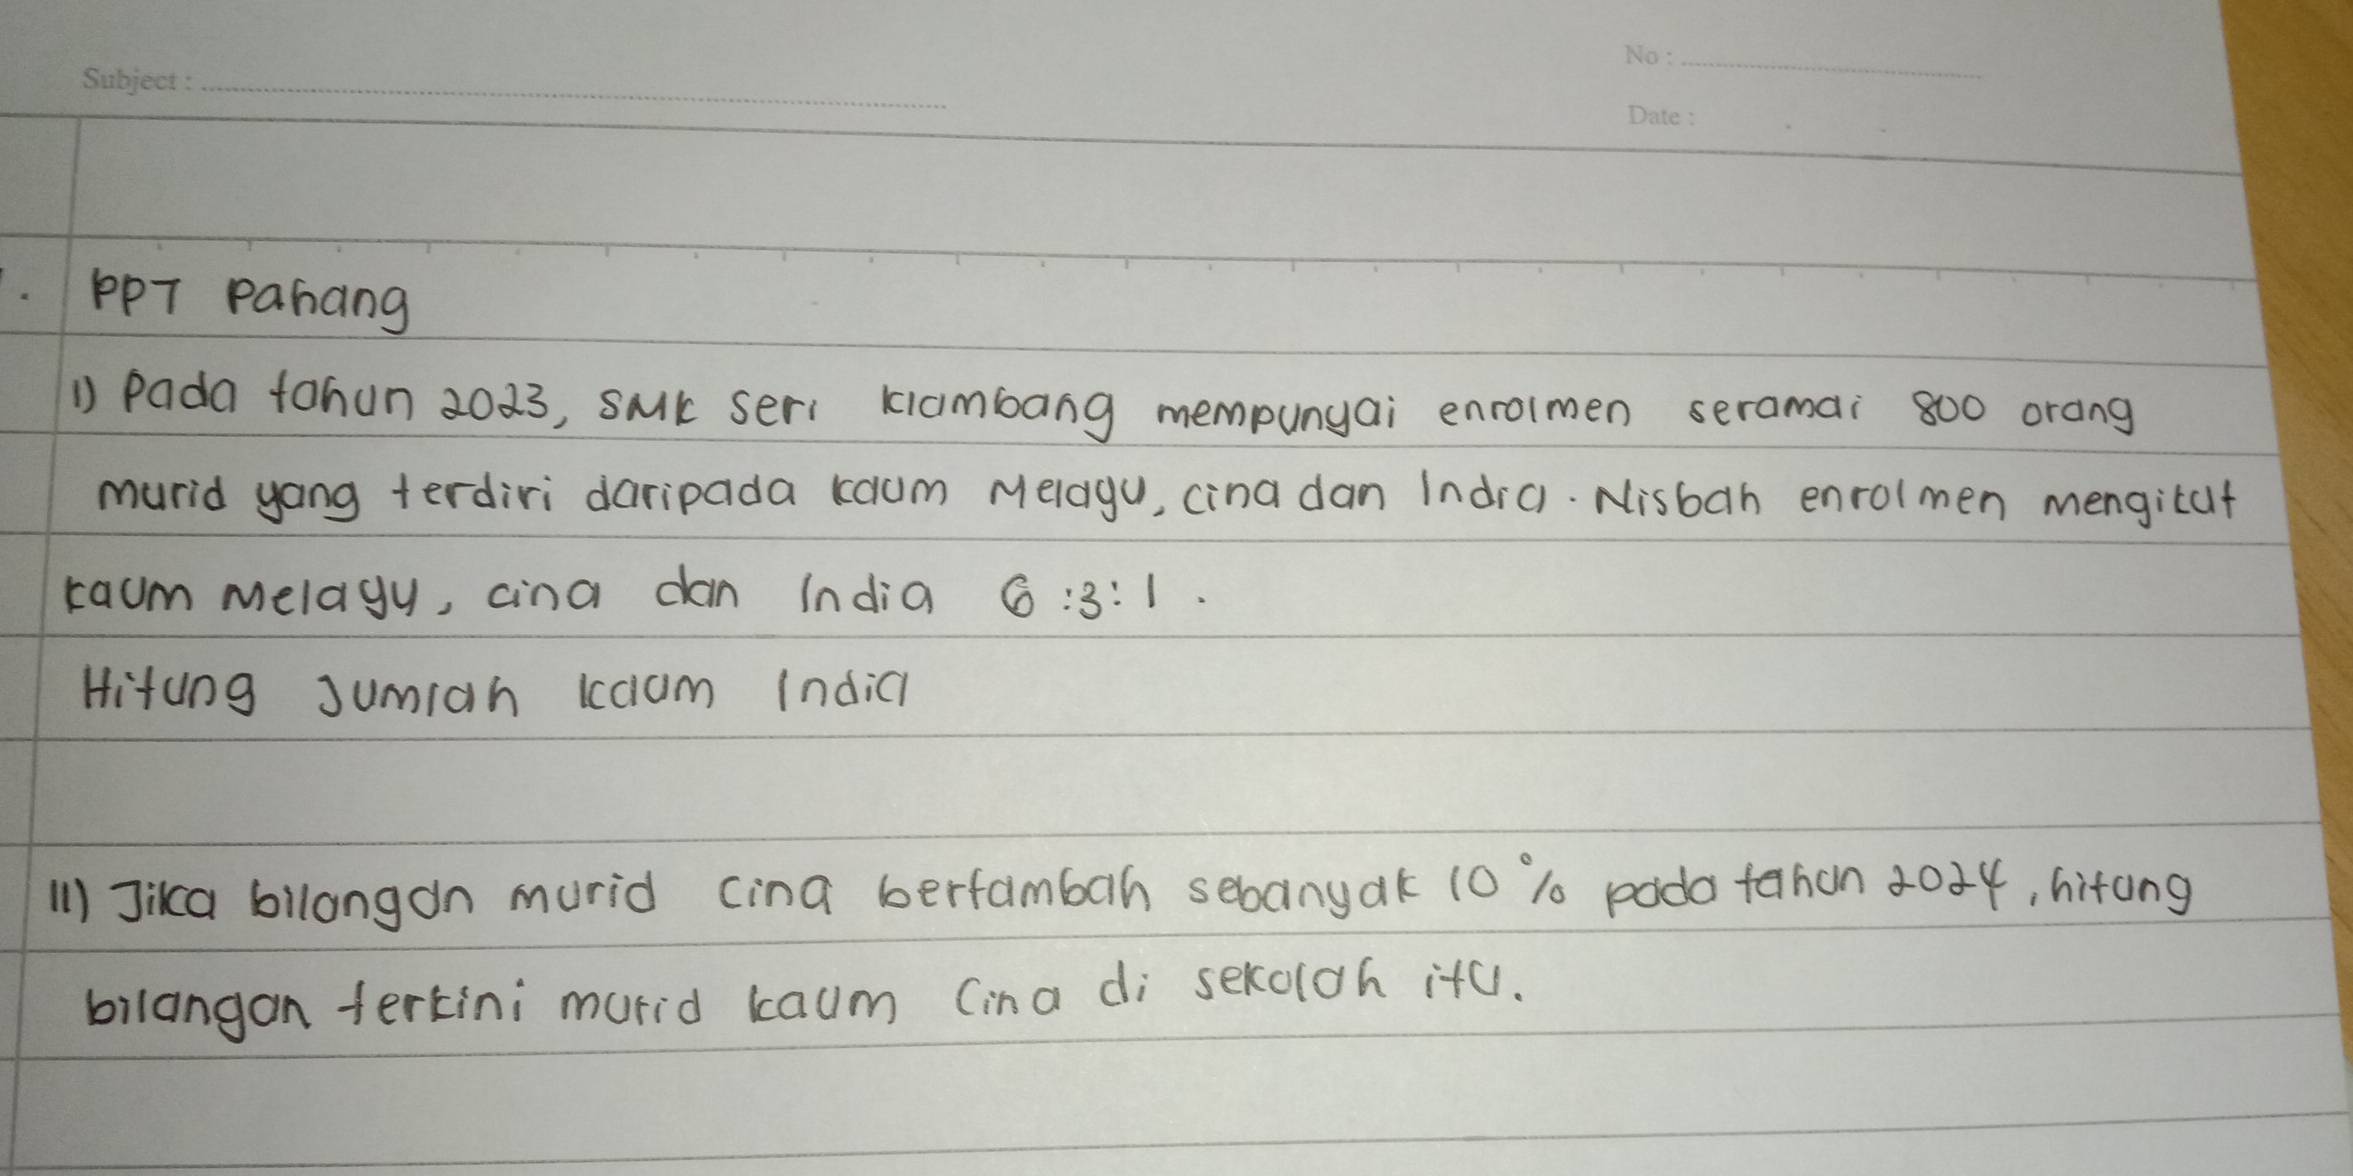 Subject :
No :
Date :
. PPT Pahang
i) Pada tahun 2023, SMK Seri Kiambang mempunyai enrolmen seramai 800 orang
murid yang terdiri daripada kaum Melayu, cina dan India. Nisbah enrolmen mengikut
kaum Melayu, cina dan India 6 : 3 : 1 .
Hitung Jumlah kaum India
ii) Jika bilangan murid cina bertambah sebanyak 10 % pada tahun 2024, hitung
bilangan terkini murid kaum Cina di sekolah itu.